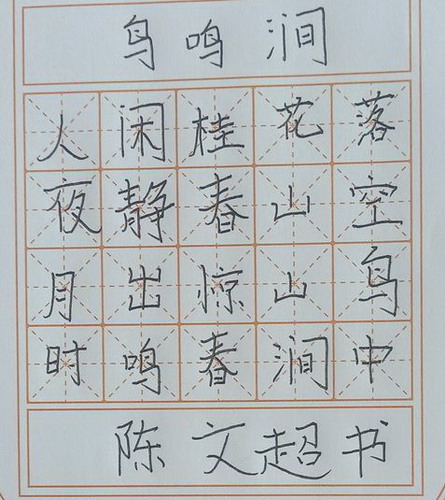 鸟鸣涧
人闲桂花落
夜静春山空
月出惊山鸟
时鸣春涧中
陈文超书